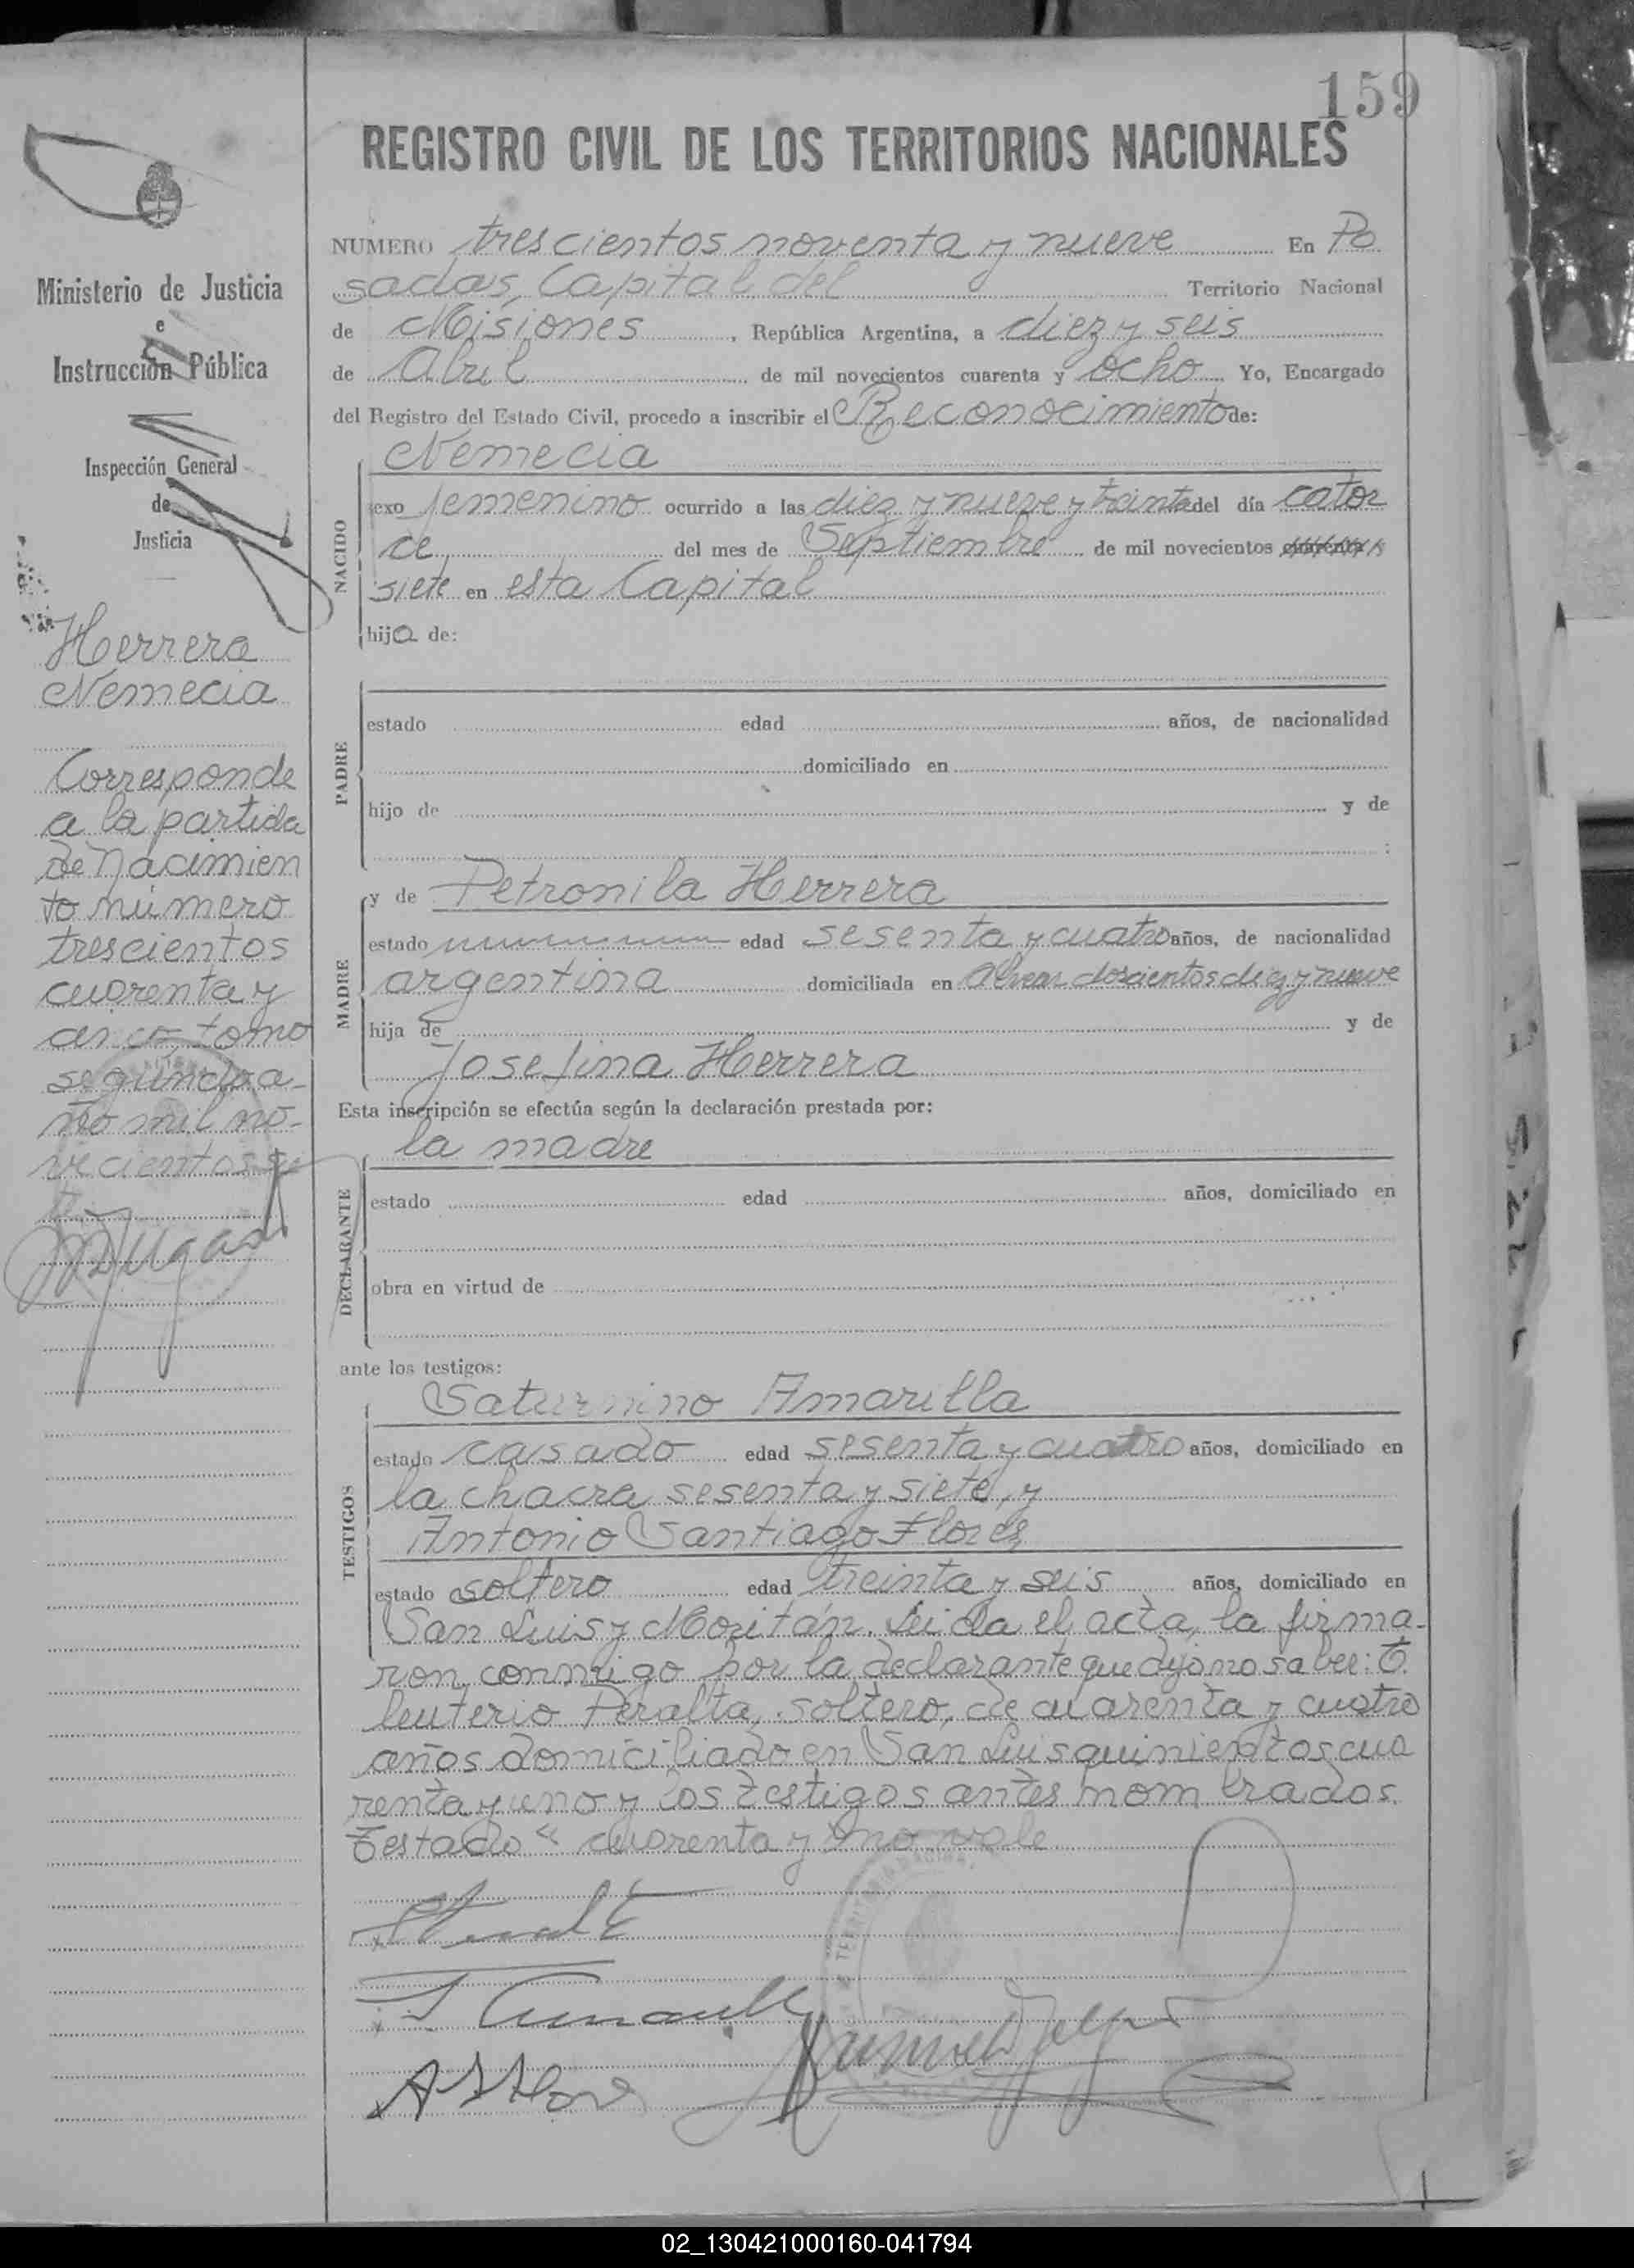 159
REGISTRO CIVIL DE LOS TERRITORIOS NACIONALES
NUMERO trescientos noventa y nueve En Po
sadas, Capital del Territorio Nacional
de Misiones, República Argentina, a diez y seis
de Abril de mil novecientos cuarenta y ocho Yo, Encargado
del Registro del Estado Civil, procedo a inscribir el Reconocimiento de:
NACIDO
Nemecia
sexo femenino ocurrido a las diez y nueve y treinta del día cator
ce del mes de Septiembre de mil novecientos cuarenta y
siete en esta Capital
hija de:
PADRE
estado edad años, de nacionalidad
domiciliado en
hijo de y de
:
MADRE
y de Petronila Herrera
estado edad sesenta y cuatro años, de nacionalidad
argentina domiciliada en Alvear doscientos diez y nueve
hija de y de
Josefina Herrera
Esta inscripción se efectúa según la declaración prestada por:
la madre
DECLARANTE
estado edad años, domiciliado en
obra en virtud de
ante los testigos:
TESTIGOS
Saturnino Amarilla
estado casado edad sesenta y cuatro años, domiciliado en
la chacra sesenta y siete, y
Antonio Santiago Flores
estado soltero edad treinta y seis años, domiciliado en
San Luis y Moritán. Leida el acta, la firma-
ron conmigo por la declarante que dijo no saber: E
leuterio Peralta, soltero, de cuarenta y cuatro
años domiciliado en San Luis quinientos cua
renta y uno y los testigos antes nombrados.
Testado " cuarenta y no vale
Ministerio de Justicia
e
Instrucción Pública
Inspección General
de
Justicia
Herrera
Nemecia
Corresponde
a la partida
de Nacimien
to número
trescientos
cuarenta y
cinco, tomo
segundo, a-
ño mil no-
vecientos sie
te.
02_130421000160-041794